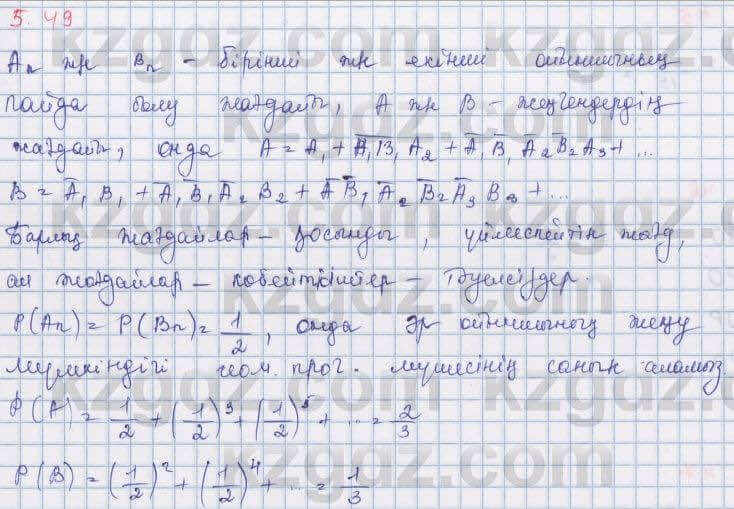 5.49
Aₙ жн Bₙ – бірінші жн екінші ойыншының
пайда болу жағдайы, A жн B – жеңгендердің
жағдайы, онда A = A₁ + A̅₁B̅₁A₂ + A̅₁B̅₁A̅₂B̅₂A₃ + ...
B = A̅₁B₁ + A̅₁B̅₁A̅₂B₂ + A̅B̅₁A̅₂B̅₂A̅₃B₃ + ...
Барлық жағдайлар – қосынды, үйлеспейтін жағд,
ал жағдайлар – көбейткіштер – тәуелсіздер.
P(Aₙ) = P(Bₙ) = 1/2, онда әр ойыншының жеңу
мүмкіндігі геом. прог. мүшесінің санын аламыз.
P(A) = 1/2 + (1/2)³ + (1/2)⁵ + ... = 2/3
P(B) = (1/2)² + (1/2)⁴ + ... = 1/3
kzgdz.com